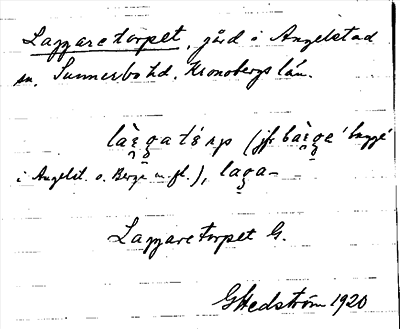 Laggaretorpet, gård i Angelstad
sn. Sunnerbo hd. Kronobergs län.
(jfr 'bagge'
i Angelst. o. Berga m. fl.), laga-
Laggaretorpet G.
GHedström 1920